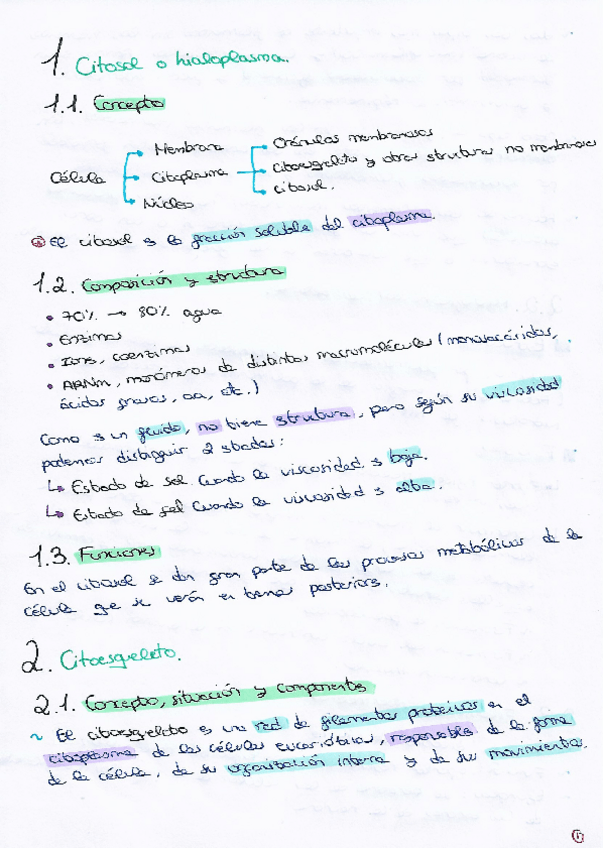 1. Citosol o hialoplasma.
1.1. Concepto
Membrana
Célula
Citoplasma
Núcleo
Orgánulos membranosos
citoesqueleto y otras structuras no membranosas
citosol.
El citosol es la fracción soluble del citoplasma.
1.2. Composición y structura
• 70% → 80% agua
• Enzimas
• Iones, coenzimas
• ARNm, monómeros de distintas macromoléculas (monosacáridos,
ácidos grasos, aa, etc.)
Como es un fluido, no tiene structura, pero según su viscosidad
podemos distinguir 2 stados:
↳ Estado de sol cuando la viscosidad s baja.
↳ Estado de gel cuando la viscosidad s alta.
1.3. Funciones
En el citosol se dan gran parte de los procesos metabólicos de la
célula que se verán en temas posteriores.
2. Citoesqueleto.
2.1. Concepto, situación y componentes
~ El citoesqueleto es una red de filamentos proteicos en el
citoplasma de las células eucarióticas, responsables de la forma
de la célula, de su organización interna y de sus movimientos.
1